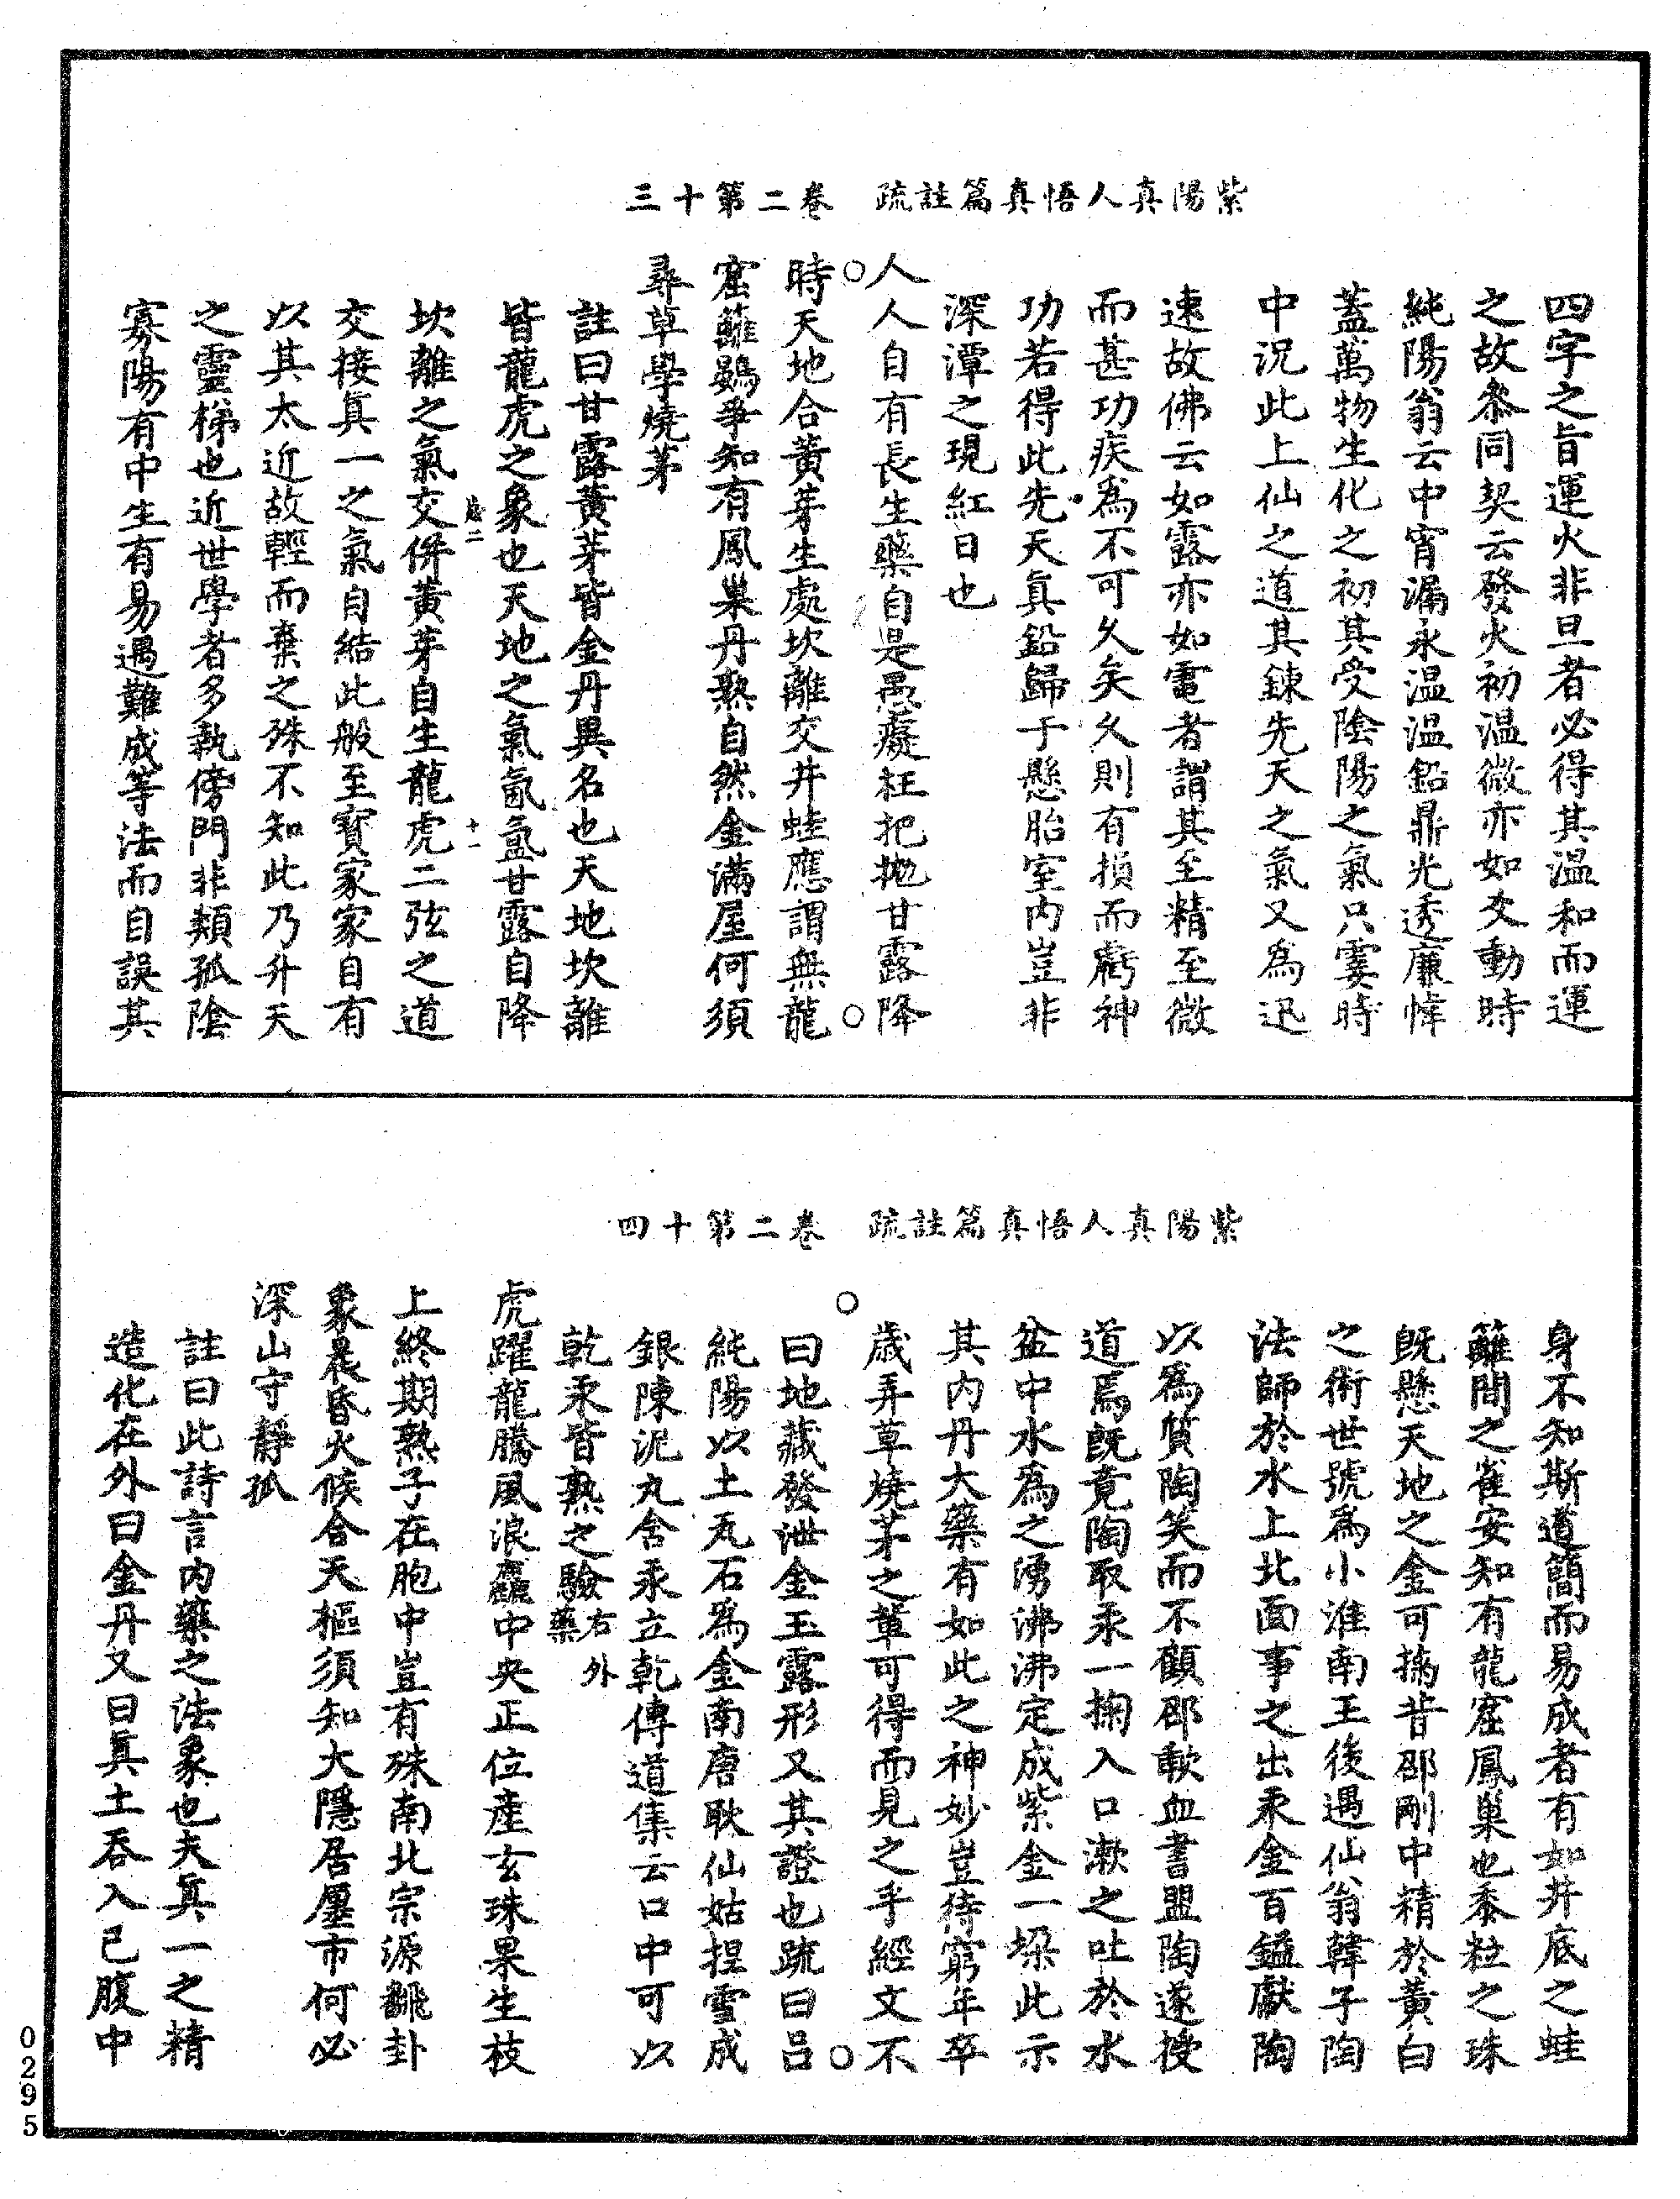 紫陽真人悟真篇註疏　卷二第十三
四字之旨運火非旦者必得其温和而運
之故叅同契云發火初温微亦如爻動時
純陽翁云中宵漏永温温鉛鼎光透廉幃
蓋萬物生化之初其受陰陽之氣只霎時
中況此上仙之道其鍊先天之氣又為迅
速故佛云如露亦如電者謂其至精至微
而甚功疾為不可久矣久則有損而虧神
功若得此先天真鉛歸于懸胎室内豈非
深潭之現紅日也
人人自有長生藥自是愚癡枉把抛甘露降
時天地合黄芽生處坎離交井蛙應謂無龍
窟籬鷃爭知有鳳巢丹熟自然金滿屋何須
尋草學燒茅
註曰甘露黄芽皆金丹異名也天地坎離
皆龍虎之象也天地之氣氤氲甘露自降
坎離之氣交併黄芽自生龍虎二弦之道
交接真一之氣自結此般至寳家家自有
以其太近故輕而棄之殊不知此乃升天
之靈梯也近世學者多執傍門非類孤陰
寡陽有中生有易遇難成等法而自誤其
紫陽真人悟真篇註疏　卷二第十四
身不知斯道簡而易成者有如井底之蛙
籬間之雀安知有龍窟鳳巢也黍粒之珠
既懸天地之金可擒昔邵剛中精於黄白
之術世號為小淮南王後遇仙翁韓子陶
法師於水上北面事之出汞金百鎰獻陶
以為質陶笑而不顧邵歃血書盟陶遂授
道焉既竟陶取汞一掬入口漱之吐於水
盆中水為之湧沸沸定成紫金一垜此示
其内丹大藥有如此之神妙豈待窮年卒
歲弄草燒茅之輩可得而見之乎經文不
曰地藏發泄金玉露形又其證也疏曰呂
純陽以土瓦石為金南唐耿仙姑捏雪成
銀陳泥丸含汞立乾傳道集云口中可以
乾汞皆熟之驗右外藥
虎躍龍騰風浪麤中央正位產玄珠果生枝
上終期熟子在胞中豈有殊南北宗源翻卦
象晨昏火候合天樞須知大隱居鄽市何必
深山守靜孤
註曰此詩言内藥之法象也夫真一之精
造化在外曰金丹又曰真土吞入己腹中
0295